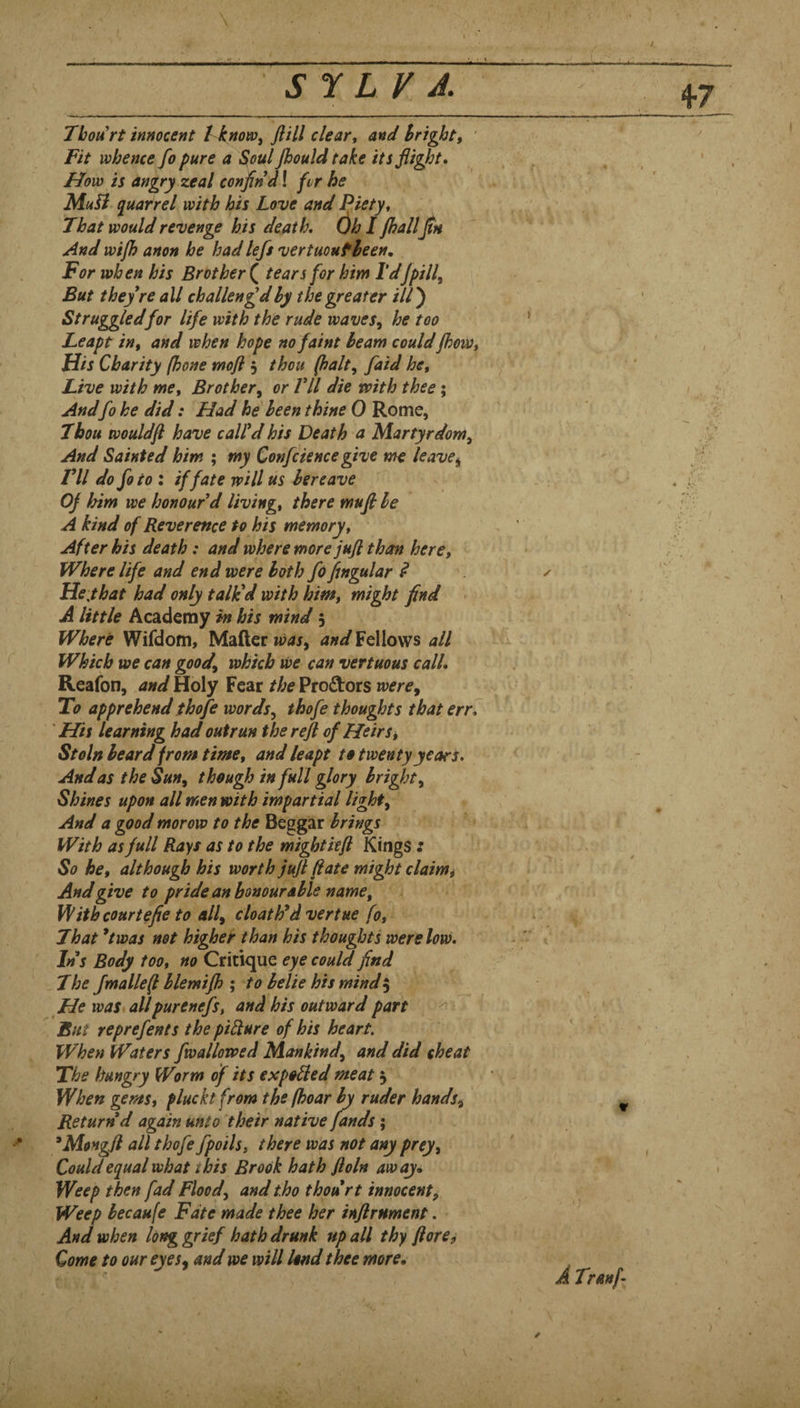 SYLVA. 47
Thou'rt innocent I know, ſtill clear, and bright,
Fit whence ſo pure a Soul ſhould take its flight.
How is angry zeal confin'd! for he
Muſt quarrel with his Love and Piety,
That would revenge his death. Oh I ſhall ſin
And wiſh anon he had leſs vertuous been.
For when his Brother ( tears for him I'd ſpill,
But they're all challeng'd by the greater ill )
Struggled for life with the rude waves, he too
Leapt in, and when hope no faint beam could ſhow,
His Charity ſhone moſt; thou ſhalt, ſaid he,
Live with me, Brother, or I'll die with thee;
And ſo he did: Had he been thine O Rome,
Thou wouldſt have call'd his Death a Martyrdom,
And Sainted him; my Conſcience give me leave,
I'll do ſo to: if fate will us bereave
Of him we honour'd living, there muſt be
A kind of Reverence to his memory,
After his death: and where more juſt than here,
Where life and end were both ſo ſingular?
He that had only talk'd with him, might find
A little Academy in his mind;
Where Wiſdom, Maſter was, and Fellows all
Which we can good, which we can vertuous call.
Reaſon, and Holy Fear the Proctors were,
To apprehend thoſe words, thoſe thoughts that err.
His learning had outrun the reſt of Heirs,
Stoln beard from time, and leapt to twenty years.
And as the Sun, though in full glory bright,
Shines upon all men with impartial light,
And a good morow to the Beggar brings
With as full Rays as to the mightieſt Kings:
So he, although his worth juſt ſtate might claim,
And give to pride an honourable name,
With courteſie to all, cloath'd vertue ſo,
That 'twas not higher than his thoughts were low.
In's Body too, no Critique eye could find
The ſmalleſt blemiſh; to belie his mind;
He was all pureneſs, and his outward part
But repreſents the picture of his heart.
When Waters ſwallowed Mankind, and did cheat
The hungry Worm of its expected meat;
When gems, pluckt from the ſhoar by ruder hands,
Return'd again unto their native ſands;
'Mongſt all thoſe ſpoils, there was not any prey,
Could equal what this Brook hath ſtoln away.
Weep then ſad Flood, and tho thou'rt innocent,
Weep becauſe Fate made thee her inſtrument.
And when long grief hath drunk up all thy ſtore,
Come to our eyes, and we will lend thee more.
A Tranſ-